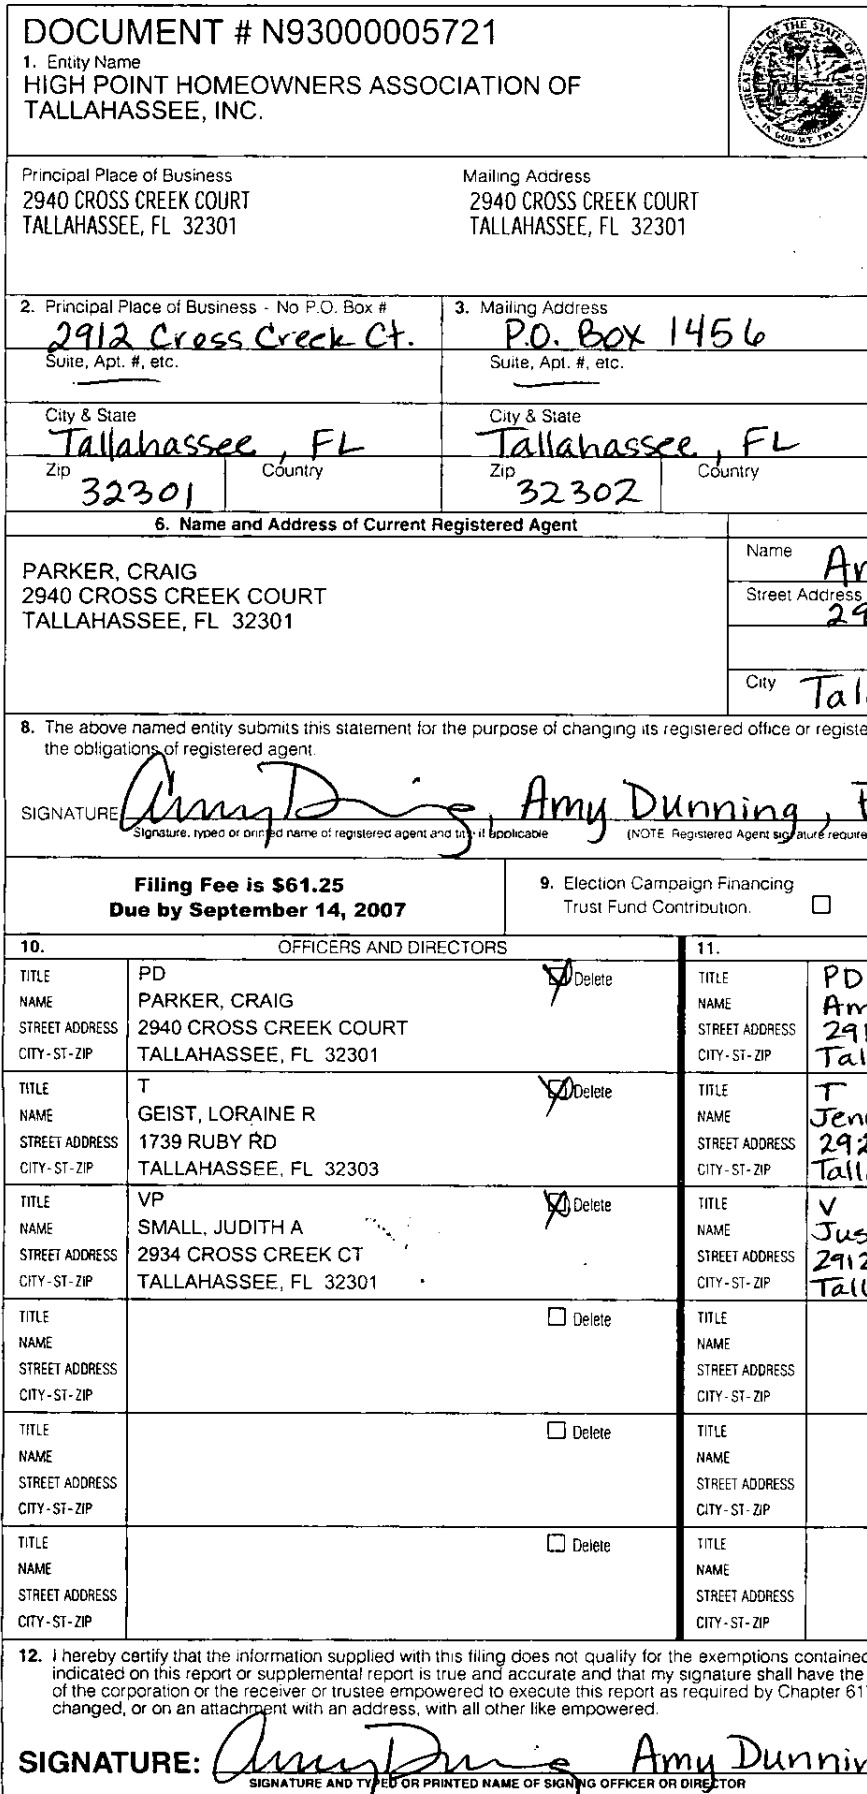 DOCUMENT # N93000005721
1. Entity Name
HIGH POINT HOMEOWNERS ASSOCIATION OF
TALLAHASSEE, INC.
GREAT SEAL OF THE STATE OF FLORIDA
IN GOD WE TRUST
Principal Place of Business
2940 CROSS CREEK COURT
TALLAHASSEE, FL 32301
Mailing Address
2940 CROSS CREEK COURT
TALLAHASSEE, FL 32301
2. Principal Place of Business - No P.O. Box #
2912 Cross Creek Ct.
Suite, Apt. #, etc.
City & State
Tallahassee, FL
Zip Country
32301
3. Mailing Address
P.O. Box 1456
Suite, Apt. #, etc.
City & State
Tallahassee, FL
Zip Country
32302
6. Name and Address of Current Registered Agent
PARKER, CRAIG
2940 CROSS CREEK COURT
TALLAHASSEE, FL 32301
Name
Street Address
29
City Tal
8. The above named entity submits this statement for the purpose of changing its registered office or registe
the obligations of registered agent.
SIGNATURE Amy Dunning, Amy Dunning,
Signature, typed or printed name of registered agent and title if applicable (NOTE Registered Agent signature require
Filing Fee is $61.25
Due by September 14, 2007
9. Election Campaign Financing
Trust Fund Contribution.
10. OFFICERS AND DIRECTORS
TITLE PD Delete
NAME PARKER, CRAIG
STREET ADDRESS 2940 CROSS CREEK COURT
CITY-ST-ZIP TALLAHASSEE, FL 32301
TITLE T Delete
NAME GEIST, LORAINE R
STREET ADDRESS 1739 RUBY RD
CITY-ST-ZIP TALLAHASSEE, FL 32303
TITLE VP Delete
NAME SMALL, JUDITH A
STREET ADDRESS 2934 CROSS CREEK CT
CITY-ST-ZIP TALLAHASSEE, FL 32301
TITLE Delete
NAME
STREET ADDRESS
CITY-ST-ZIP
TITLE Delete
NAME
STREET ADDRESS
CITY-ST-ZIP
TITLE Delete
NAME
STREET ADDRESS
CITY-ST-ZIP
11.
TITLE PD
NAME Am
STREET ADDRESS 291
CITY-ST-ZIP Tal
TITLE T
NAME Jen
STREET ADDRESS 292
CITY-ST-ZIP Tall
TITLE V
NAME Jus
STREET ADDRESS 2912
CITY-ST-ZIP Tall
TITLE
NAME
STREET ADDRESS
CITY-ST-ZIP
TITLE
NAME
STREET ADDRESS
CITY-ST-ZIP
TITLE
NAME
STREET ADDRESS
CITY-ST-ZIP
12. I hereby certify that the information supplied with this filing does not qualify for the exemptions contained
indicated on this report or supplemental report is true and accurate and that my signature shall have the
of the corporation or the receiver or trustee empowered to execute this report as required by Chapter 61
changed, or on an attachment with an address, with all other like empowered.
SIGNATURE: Amy Dunning Amy Dunnin
SIGNATURE AND TYPED OR PRINTED NAME OF SIGNING OFFICER OR DIRECTOR